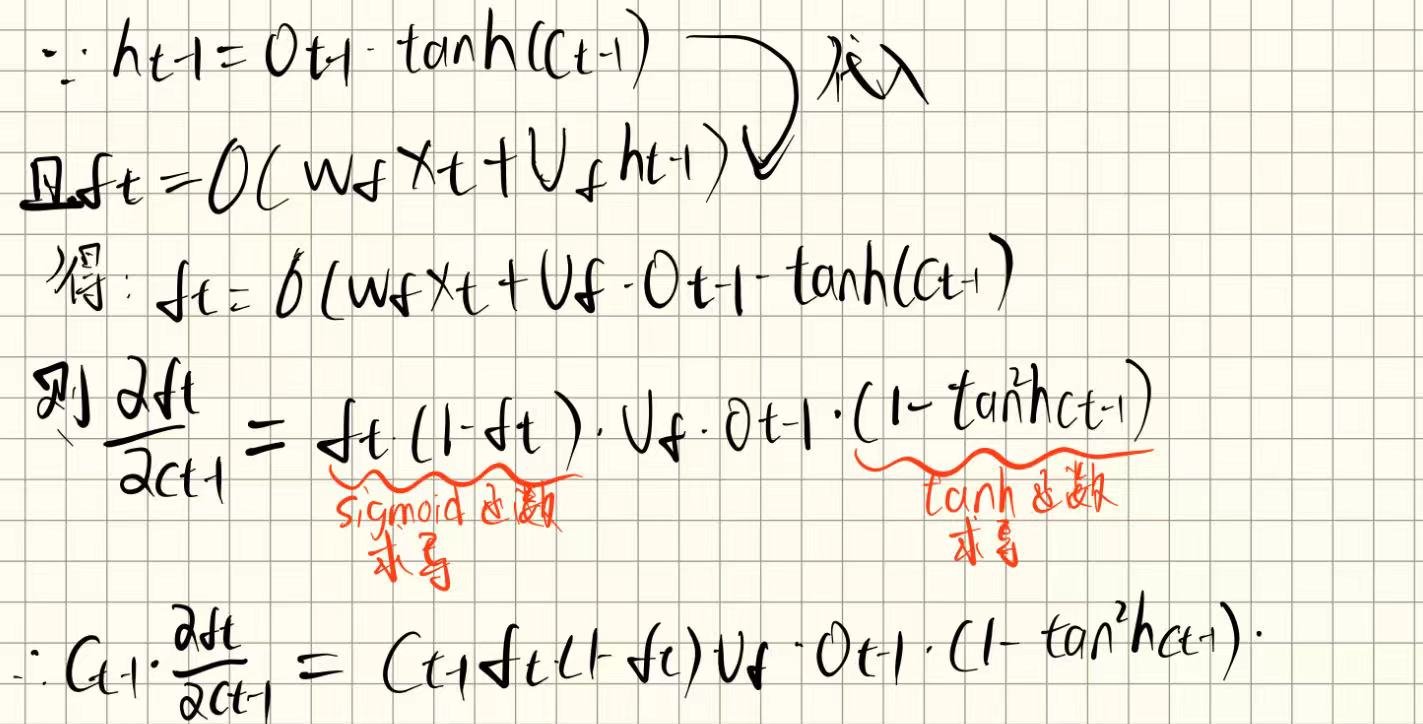 ∵ h_{t-1} = O_{t-1} · tanh(C_{t-1}) 代入
且 f_t = σ(W_f X_t + U_f h_{t-1})
得: f_t = σ(W_f X_t + U_f · O_{t-1} · tanh(C_{t-1})
则 ∂f_t/∂C_{t-1} = f_t · (1 - f_t) · U_f · O_{t-1} · (1 - tan²h C_{t-1})
sigmoid 函数 tanh 函数
求导 求导
∴ C_{t-1} · ∂f_t/∂C_{t-1} = C_{t-1} f_t (1 - f_t) U_f · O_{t-1} · (1 - tan²h C_{t-1}) ·